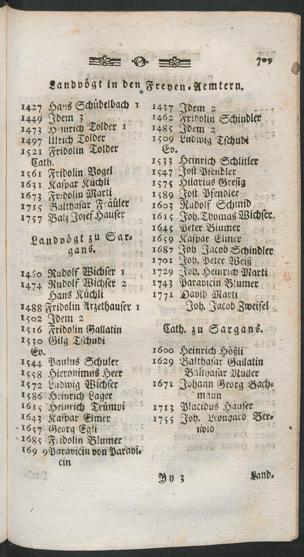 709
Landvögt in den Freyen-Aemtern.
1427 Hans Schübelbach 1
1449 Idem 3
1473 Heinrich Tolder 1
1497 Ulrich Tolder
1521 Fridolin Tolder
Cath.
1561 Fridolin Vogel
1631 Kaspar Küchli
1673 Fridolin Marti
1715 Balthasar Fräuler
1757 Balz Josef Hauser
Landvögt zu Sar-
gans.
1460 Rudolf Wichser 1
1474 Rudolf Wichser 2
Hans Küchli
1488 Fridolin Arzethauser 1
1502 Idem 2
1516 Fridolin Gallatin
1530 Gilg Tschudi
Ev.
1544 Paulus Schuler
1558 Hieronimus Heer
1572 Ludwig Wichser
1586 Heinrich Lager
1615 Heinrich Trümpi
1643 Kaspar Elmer
1657 Georg Egli
1685 Fridolin Blumer
169 9 Paravicin von Paravi-
cin
1437 Idem 2
1462 Fridolin Schindler
1485 Idem 2
1509 Ludwig Tschudi
Ev.
1533 Heinrich Schlitler
1547 Jost Pfendler
1575 Hilarius Gresig
1589 Jost Pfendler
1603 Rudolf Schmid
1615 Joh. Thomas Wichser.
1645 Peter Blumer
1659 Kaspar Elmer
1687 Joh Jacob Schindler
1701 Joh. Peter Weiß
1729 Joh. Heinrich Marti
1743 Paravicin Blumer
1771 David Marti
Joh. Jacob Zweifel
Cath. zu Sargans.
1600 Heinrich Hößli
1629 Balthasar Gallatin
Balthasar Müller
1671 Johann Georg Bach-
mann
1713 Placidus Hauser
1755 Joh. Leongard Ber-
nold
Yy 3
Land.